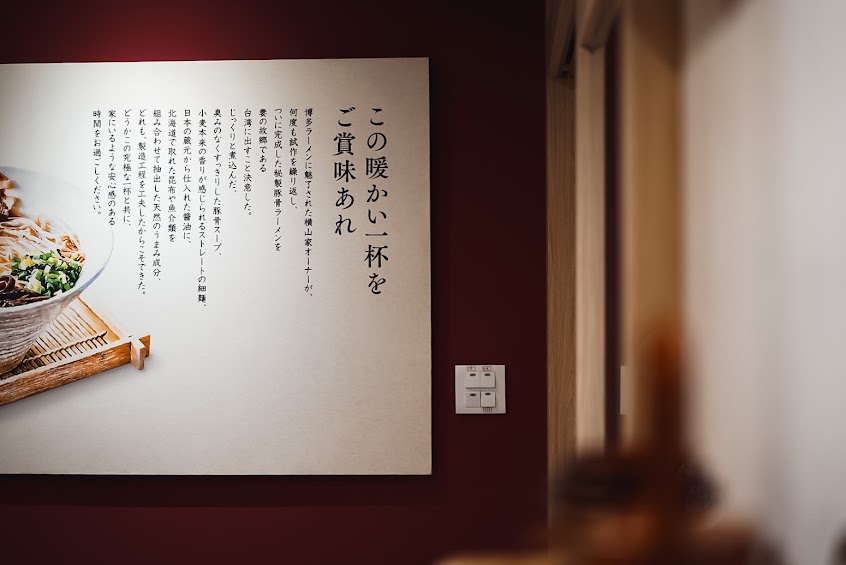 この暖かい一杯を
ご賞味あれ
博多ラーメンに魅了された横山家オーナーが、
何度も試作を繰り返し、
ついに完成した秘製豚骨ラーメンを
妻の故郷である
台湾に出すこと決意した。
じっくりと煮込んだ、
臭みのなくすっきりした豚骨スープ、
小麦本来の香りが感じられるストレートの細麺、
日本の蔵元から仕入れた醤油に、
北海道で取れた昆布や魚介類を
組み合わせて抽出した天然のうまみ成分、
どれも、製造工程を工夫したからこそできた。
どうかこの究極な一杯と共に、
家にいるような安心感のある
時間をお過ごしください。